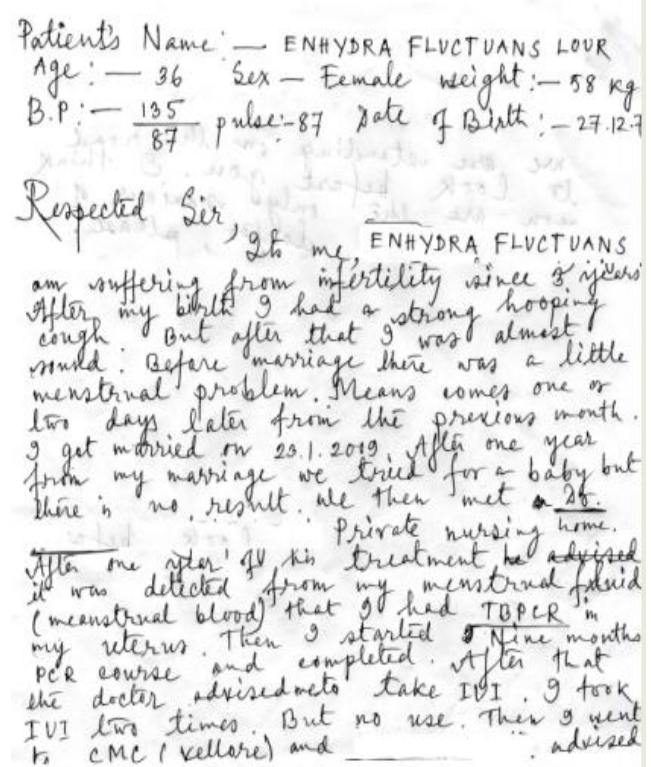 Patient's Name :— ENHYDRA FLUCTUANS LOUR
Age :— 36 Sex — Female weight :— 58 kg
B.P :— 135/87 pulse :-87 Date of Birth :— 27.12.7
Respected Sir,
Its me, ENHYDRA FLUCTUANS
am suffering from infertility since 3 years
After my birth I had a strong hooping
cough But after that I was almost
sound. Before marriage there was a little
menstrual problem. Means comes one or
two days later from the previous month.
I got married on 23.1.2019. After one year
from my marriage we tried for a baby but
there is no result. We then met a Dr.
Private nursing home.
After one year of his treatment he advised
it was detected from my menstrual fluid
(meanstrual blood) that I had TBPCR in
my uterus. Then I started Nine months
PCR course and completed. After that
the doctor advised me to take IVI. I took
IVI two times. But no use. Then I went
to CMC (Vellore) and advised